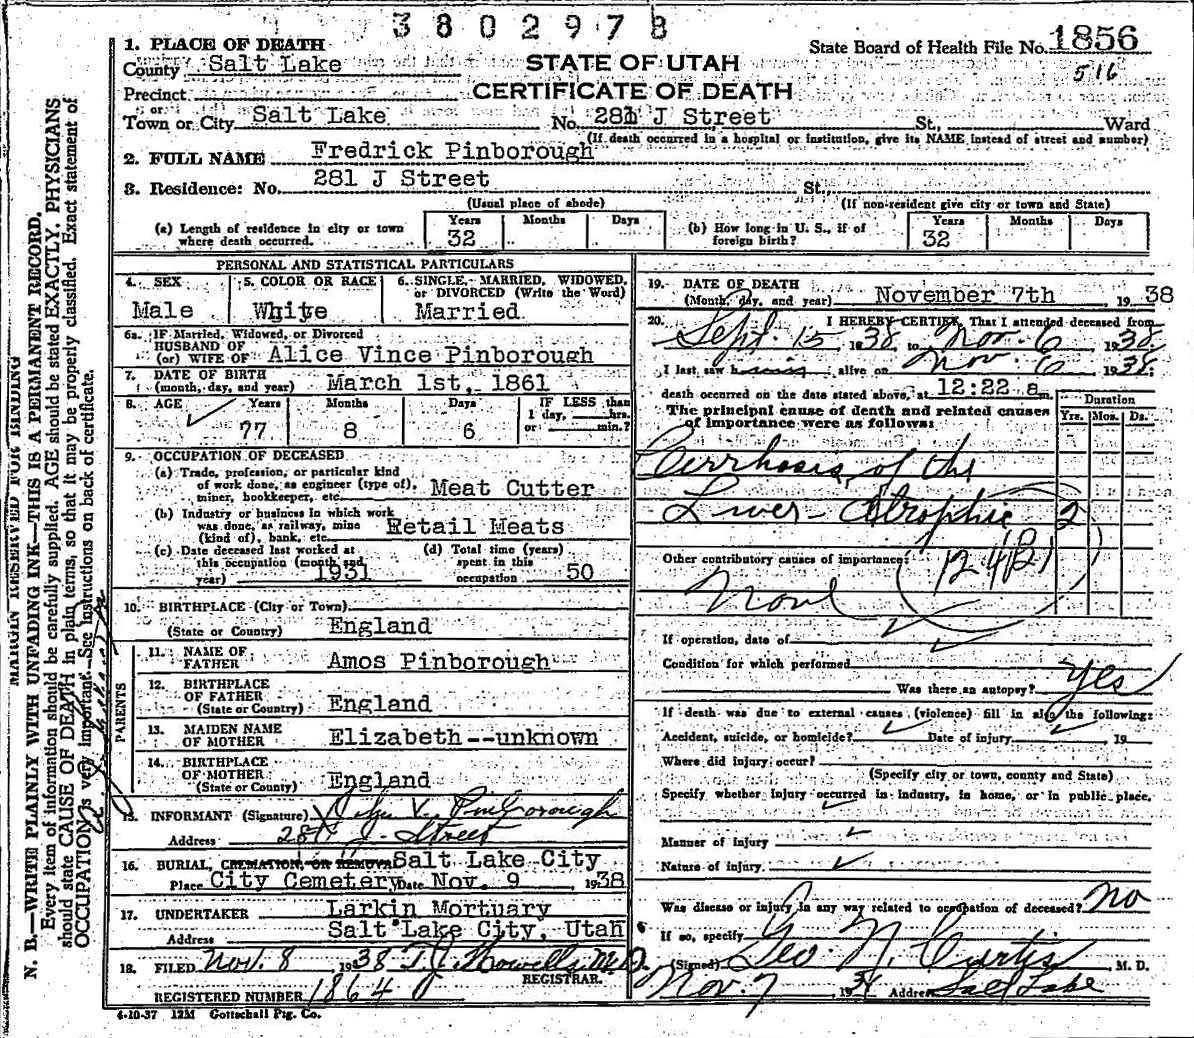 3802978
1. PLACE OF DEATH
State Board of Health File No. 1856
County Salt Lake
STATE OF UTAH
516
Precinct
CERTIFICATE OF DEATH
or
Town or City Salt Lake No. 281 J Street St., Ward
(If death occurred in a hospital or institution, give its NAME instead of street and number)
2. FULL NAME Fredrick Pinborough
3. Residence: No. 281 J Street St.
(Usual place of abode) (If non-resident give city or town and State)
(a) Length of residence in city or town where death occurred. Years 32 Months Days
(b) How long in U. S., if of foreign birth? Years 32 Months Days
PERSONAL AND STATISTICAL PARTICULARS
4. SEX Male
5. COLOR OR RACE White
6. SINGLE, MARRIED, WIDOWED, or DIVORCED (Write the Word) Married
6a. IF Married, Widowed, or Divorced
HUSBAND OF
(or) WIFE OF Alice Vince Pinborough
7. DATE OF BIRTH
(month, day, and year) March 1st, 1861
8. AGE Years 77 Months 8 Days 6 IF LESS than 1 day, hrs. or min.?
9. OCCUPATION OF DECEASED
(a) Trade, profession, or particular kind
of work done, as engineer (type of),
miner, bookkeeper, etc. Meat Cutter
(b) Industry or business in which work
was done, as railway, mine
(kind of), bank, etc. Retail Meats
(c) Date deceased last worked at
this occupation (month and
year) 1931
(d) Total time (years)
spent in this
occupation 50
10. BIRTHPLACE (City or Town)
(State or Country) England
PARENTS
11. NAME OF
FATHER Amos Pinborough
12. BIRTHPLACE
OF FATHER
(State or Country) England
13. MAIDEN NAME
OF MOTHER Elizabeth--unknown
14. BIRTHPLACE
OF MOTHER
(State or Country) England
15. INFORMANT (Signature) V. Pinborough
Address 281 J. Street
16. BURIAL, CREMATION, OR REMOVAL Salt Lake City
Place City Cemetery Date Nov. 9 1938
17. UNDERTAKER Larkin Mortuary
Address Salt Lake City, Utah
18. FILED Nov. 8 1938 T. J. Howells M.D.
REGISTRAR.
REGISTERED NUMBER 1864
4-10-37 12M Gottschall Ptg. Co.
19. DATE OF DEATH
(Month, day, and year) November 7th, 1938
20. I HEREBY CERTIFY, That I attended deceased from
Sept. 15 1938, to Nov. 6 1938
I last saw him alive on Nov. 6 1938;
death occurred on the date stated above, at 12:22 a m.
The principal cause of death and related causes
of importance were as follows:
Duration
Yrs. Mos. Ds.
Cirrhosis of the
Liver - Atrophic 2
Other contributory causes of importance: 124(B)
None
If operation, date of
Condition for which performed
Was there an autopsy? Yes
If death was due to external causes (violence) fill in also the following:
Accident, suicide, or homicide? Date of injury 19
Where did injury occur?
(Specify city or town, county and State)
Specify whether injury occurred in industry, in home, or in public place.
Manner of injury
Nature of injury
Was disease or injury in any way related to occupation of deceased? No
If so, specify
(Signed) Geo N. Curtis M. D.
Nov. 7 19 Address Salt Lake
MARGIN RESERVED FOR BINDING
N. B.—WRITE PLAINLY WITH UNFADING INK—THIS IS A PERMANENT RECORD.
Every item of information should be carefully supplied. AGE should be stated EXACTLY. PHYSICIANS
should state CAUSE OF DEATH in plain terms, so that it may be properly classified. Exact statement of
OCCUPATION is very important. See instructions on back of certificate.